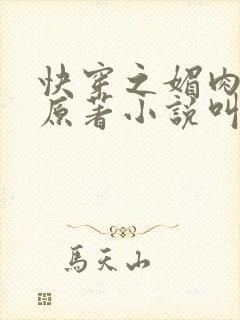 快穿之媚肉
原著小說叫
馬天山